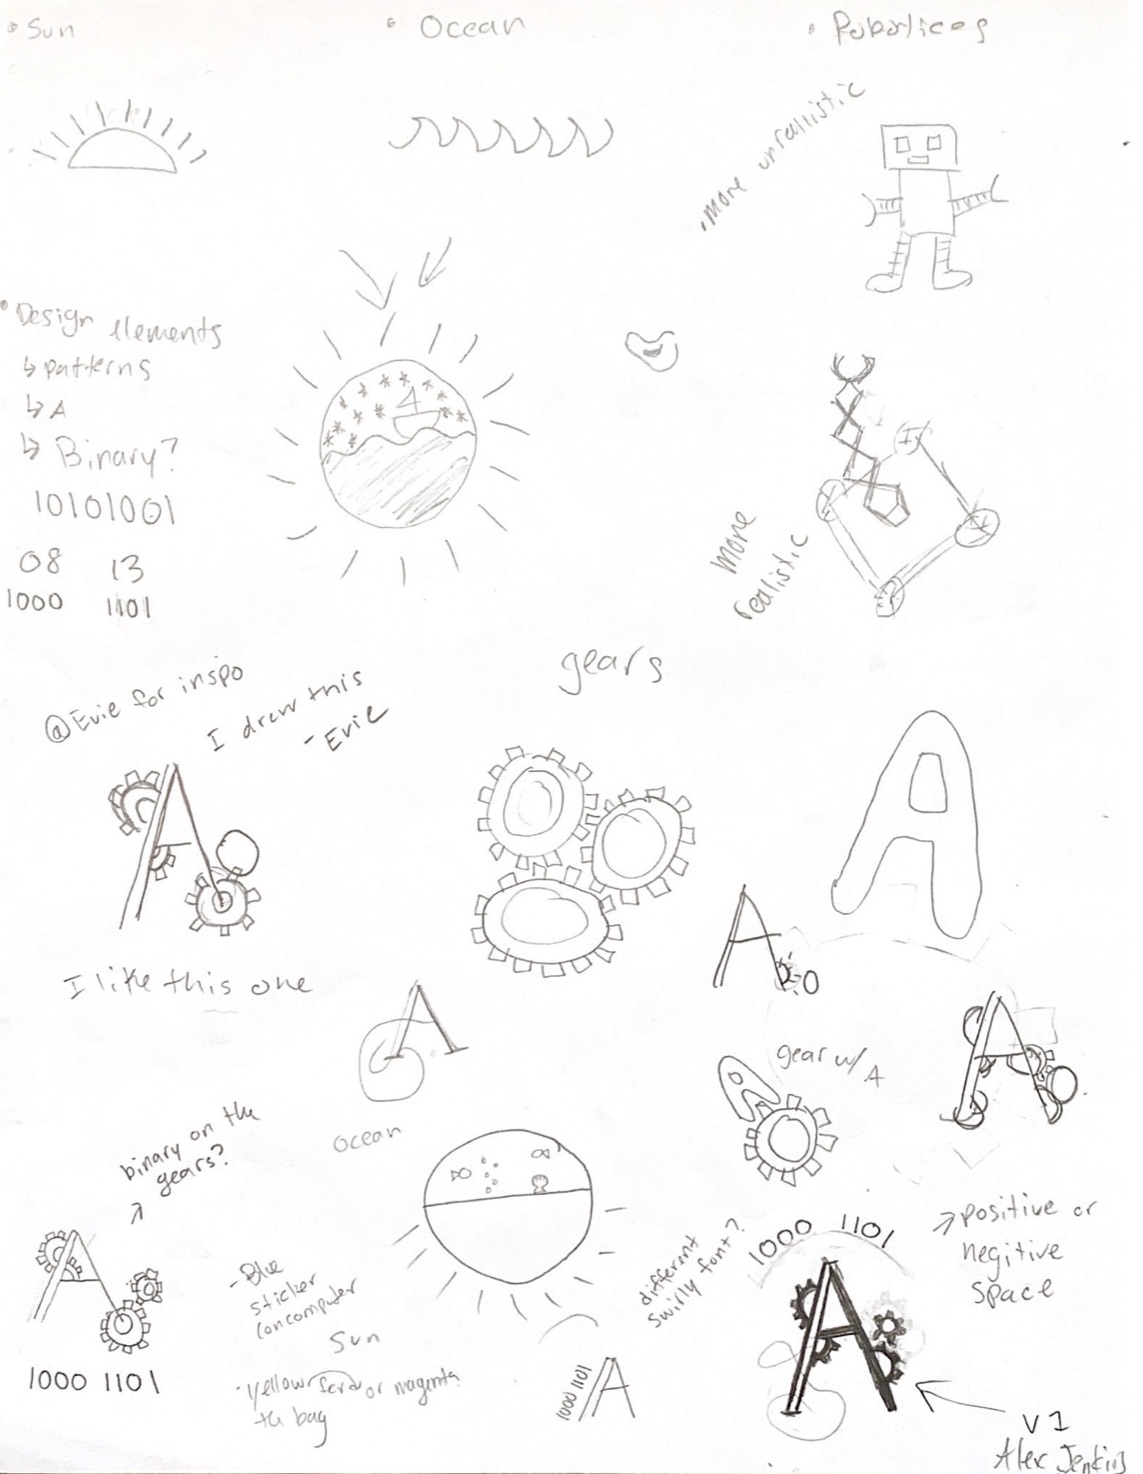 Sun
Ocean
Robotices
more unreallistic
Design elements
↳ patterns
↳ A
↳ Binary?
10101001
08 13
1000 1101
more
realistic
@Evie for inspo
I drew this
- Evie
gears
A
A
I like this one
A
A
A
A
gear w/ A
binary on the
gears?
ocean
A
1000 1101
- Blue
sticker
(on computer
Sun
yellow or magenta
the bag
1000 1101
A
different
swirly font?
1000 1101
A
positive or
negitive
space
V1
Alex Jenkins